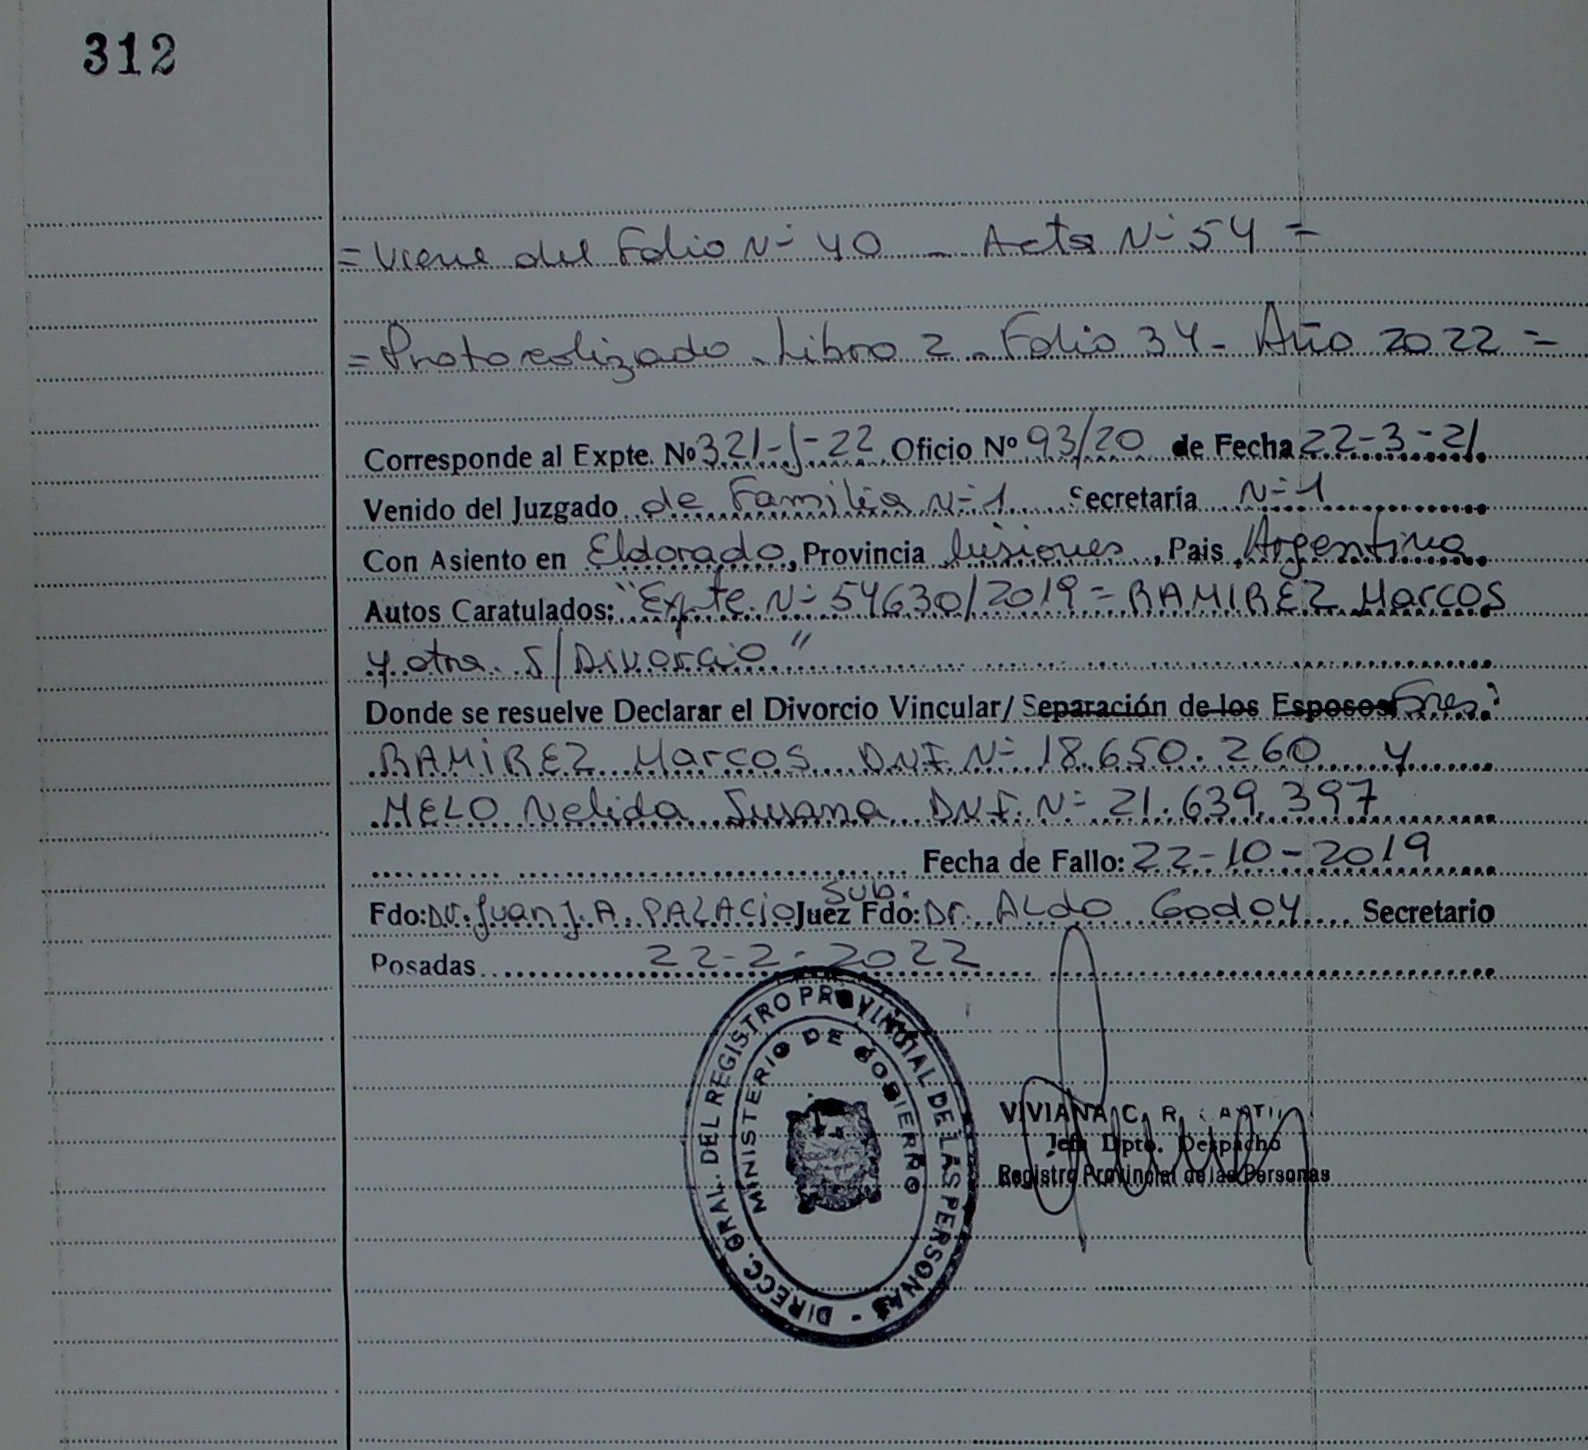 312
= Viene del Folio Nº 40 - Acta Nº 54 =
= Protocolizado - Libro 2 - Folio 34 - Año 2022 =
Corresponde al Expte. Nº 321-J-22 Oficio Nº 93/20 de Fecha 22-3-21
Venido del Juzgado de Familia Nº 1 Secretaría Nº 1
Con Asiento en Eldorado, Provincia Misiones, Pais Argentina
Autos Caratulados: "Expte. Nº 54630/2019 = RAMIREZ Marcos
y otra S/Divorcio"
Donde se resuelve Declarar el Divorcio Vincular/ Separación de los Esposos Sres:
RAMIREZ Marcos DNI Nº 18.650.260 y
MELO Nelida Susana DNI. Nº 21.639.397
Fecha de Fallo: 22-10-2019
Fdo: Dr. Juan J. A. PALACIO Juez Sub. Fdo: Dr. Aldo Godoy Secretario
Posadas 22-2-2022
DIRECC. GRAL. DEL REGISTRO PROVINCIAL DE LAS PERSONAS -
MINISTERIO DE GOBIERNO
VIVIANA C. R.
Jefa Dpto. Despacho
Registro Provincial de las Personas